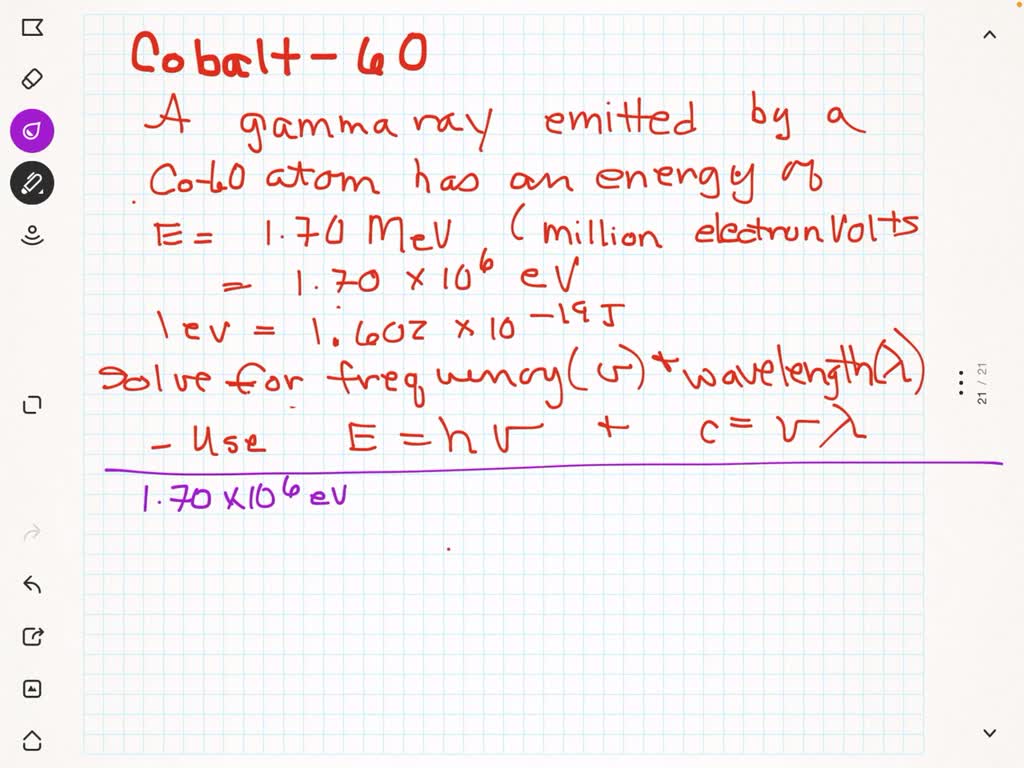 Cobalt-60
A gamma ray emitted by a
Co-60 atom has an energy of
E = 1.70 MeV (million electron Volts
= 1.70 × 10^6 eV
1 ev = 1.602 × 10^-19 J
solve for frequency (ν) + wavelength (λ)
- Use E = hν + c = νλ
1.70 × 10^6 eV
21 / 21